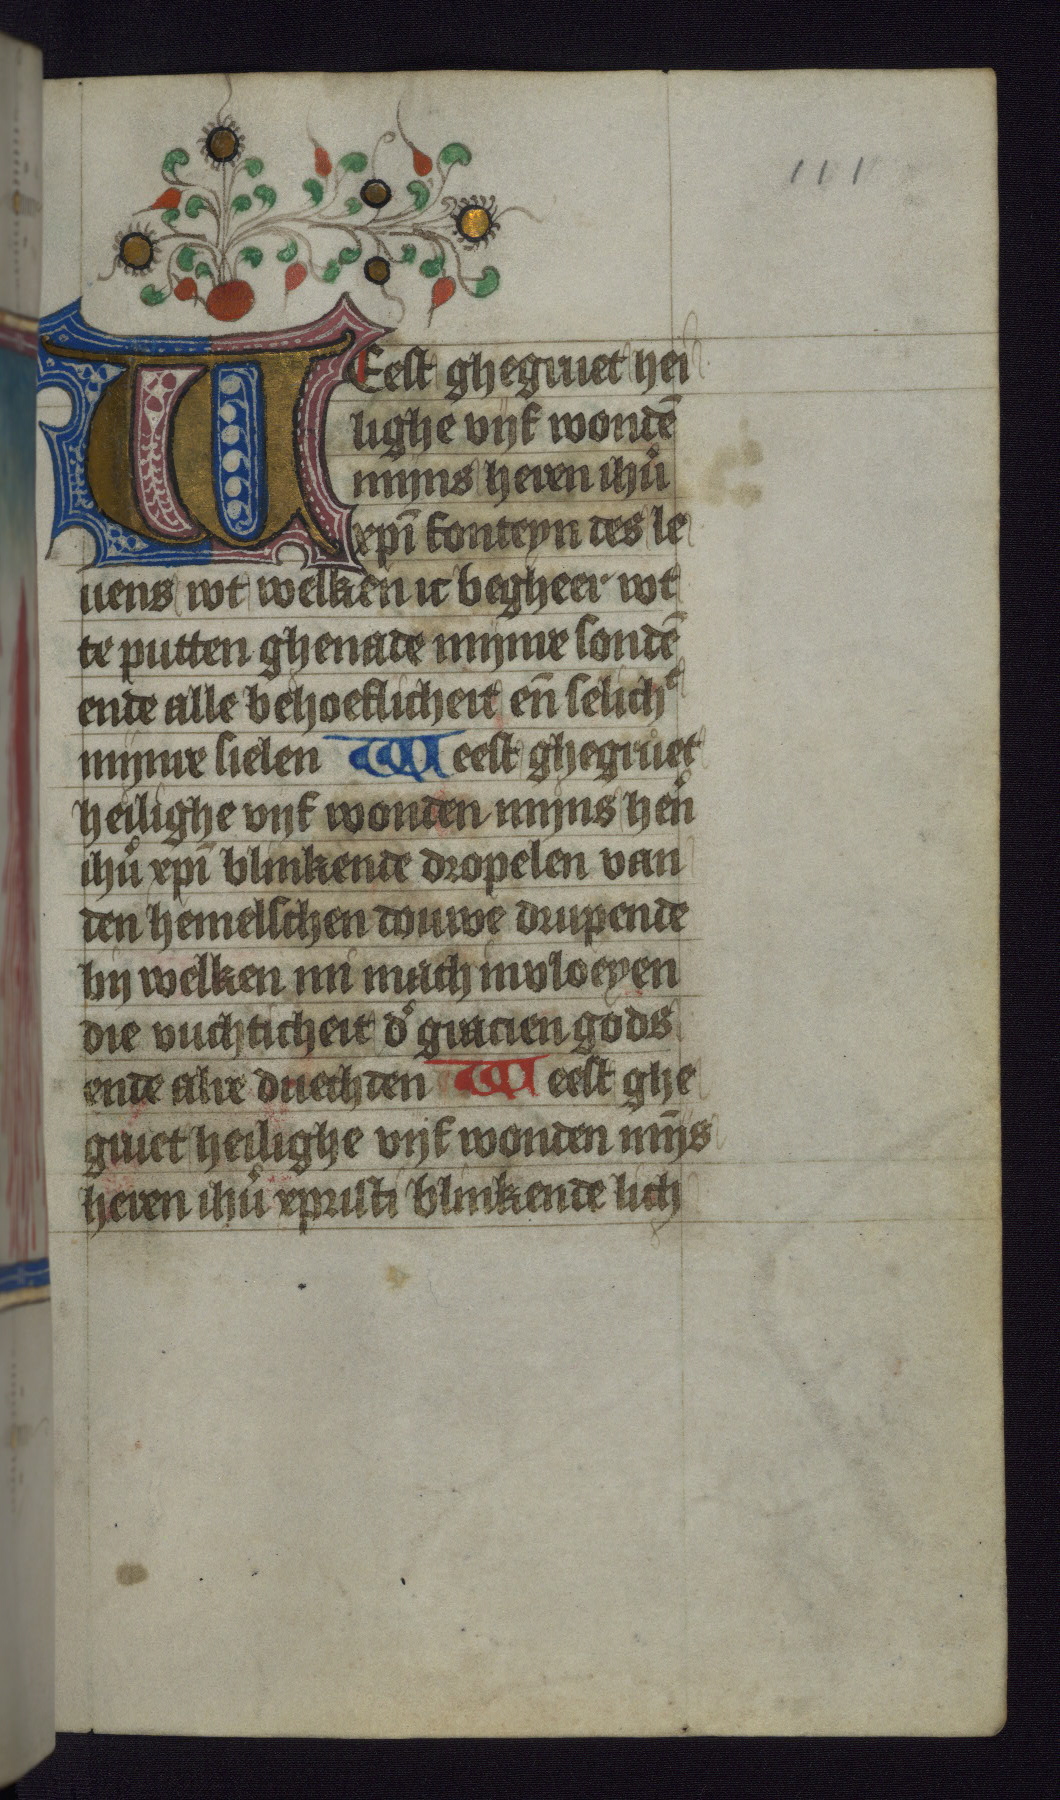 111
WEest ghegruet hei
lighe vijf wondē
mijns heren ihū
xpī fonteyn des le
uens wt welken ic begheer wt
te putten ghenade mijnre sondē
ende alle behoeflicheit eñ selichᵗ
mijnre sielen Weest ghegruet
heilighe vijf wonden mijns heñ
ihū xpī blinkende dropelen van
den hemelschen douwe drupende
bij welken mi mach invloeyen
die vuchticheit dʼ gracien gods
ende alre duechden Weest ghe
gruet heilighe vijf wonden mīns
heren ihū xpristi blinkende lich